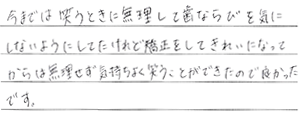 今までは笑うときに無理して歯ならびを気に
しないようにしてたけれど矯正をしてきれいになって
からは無理せず気持ちよく笑うことができたので良かった
です。